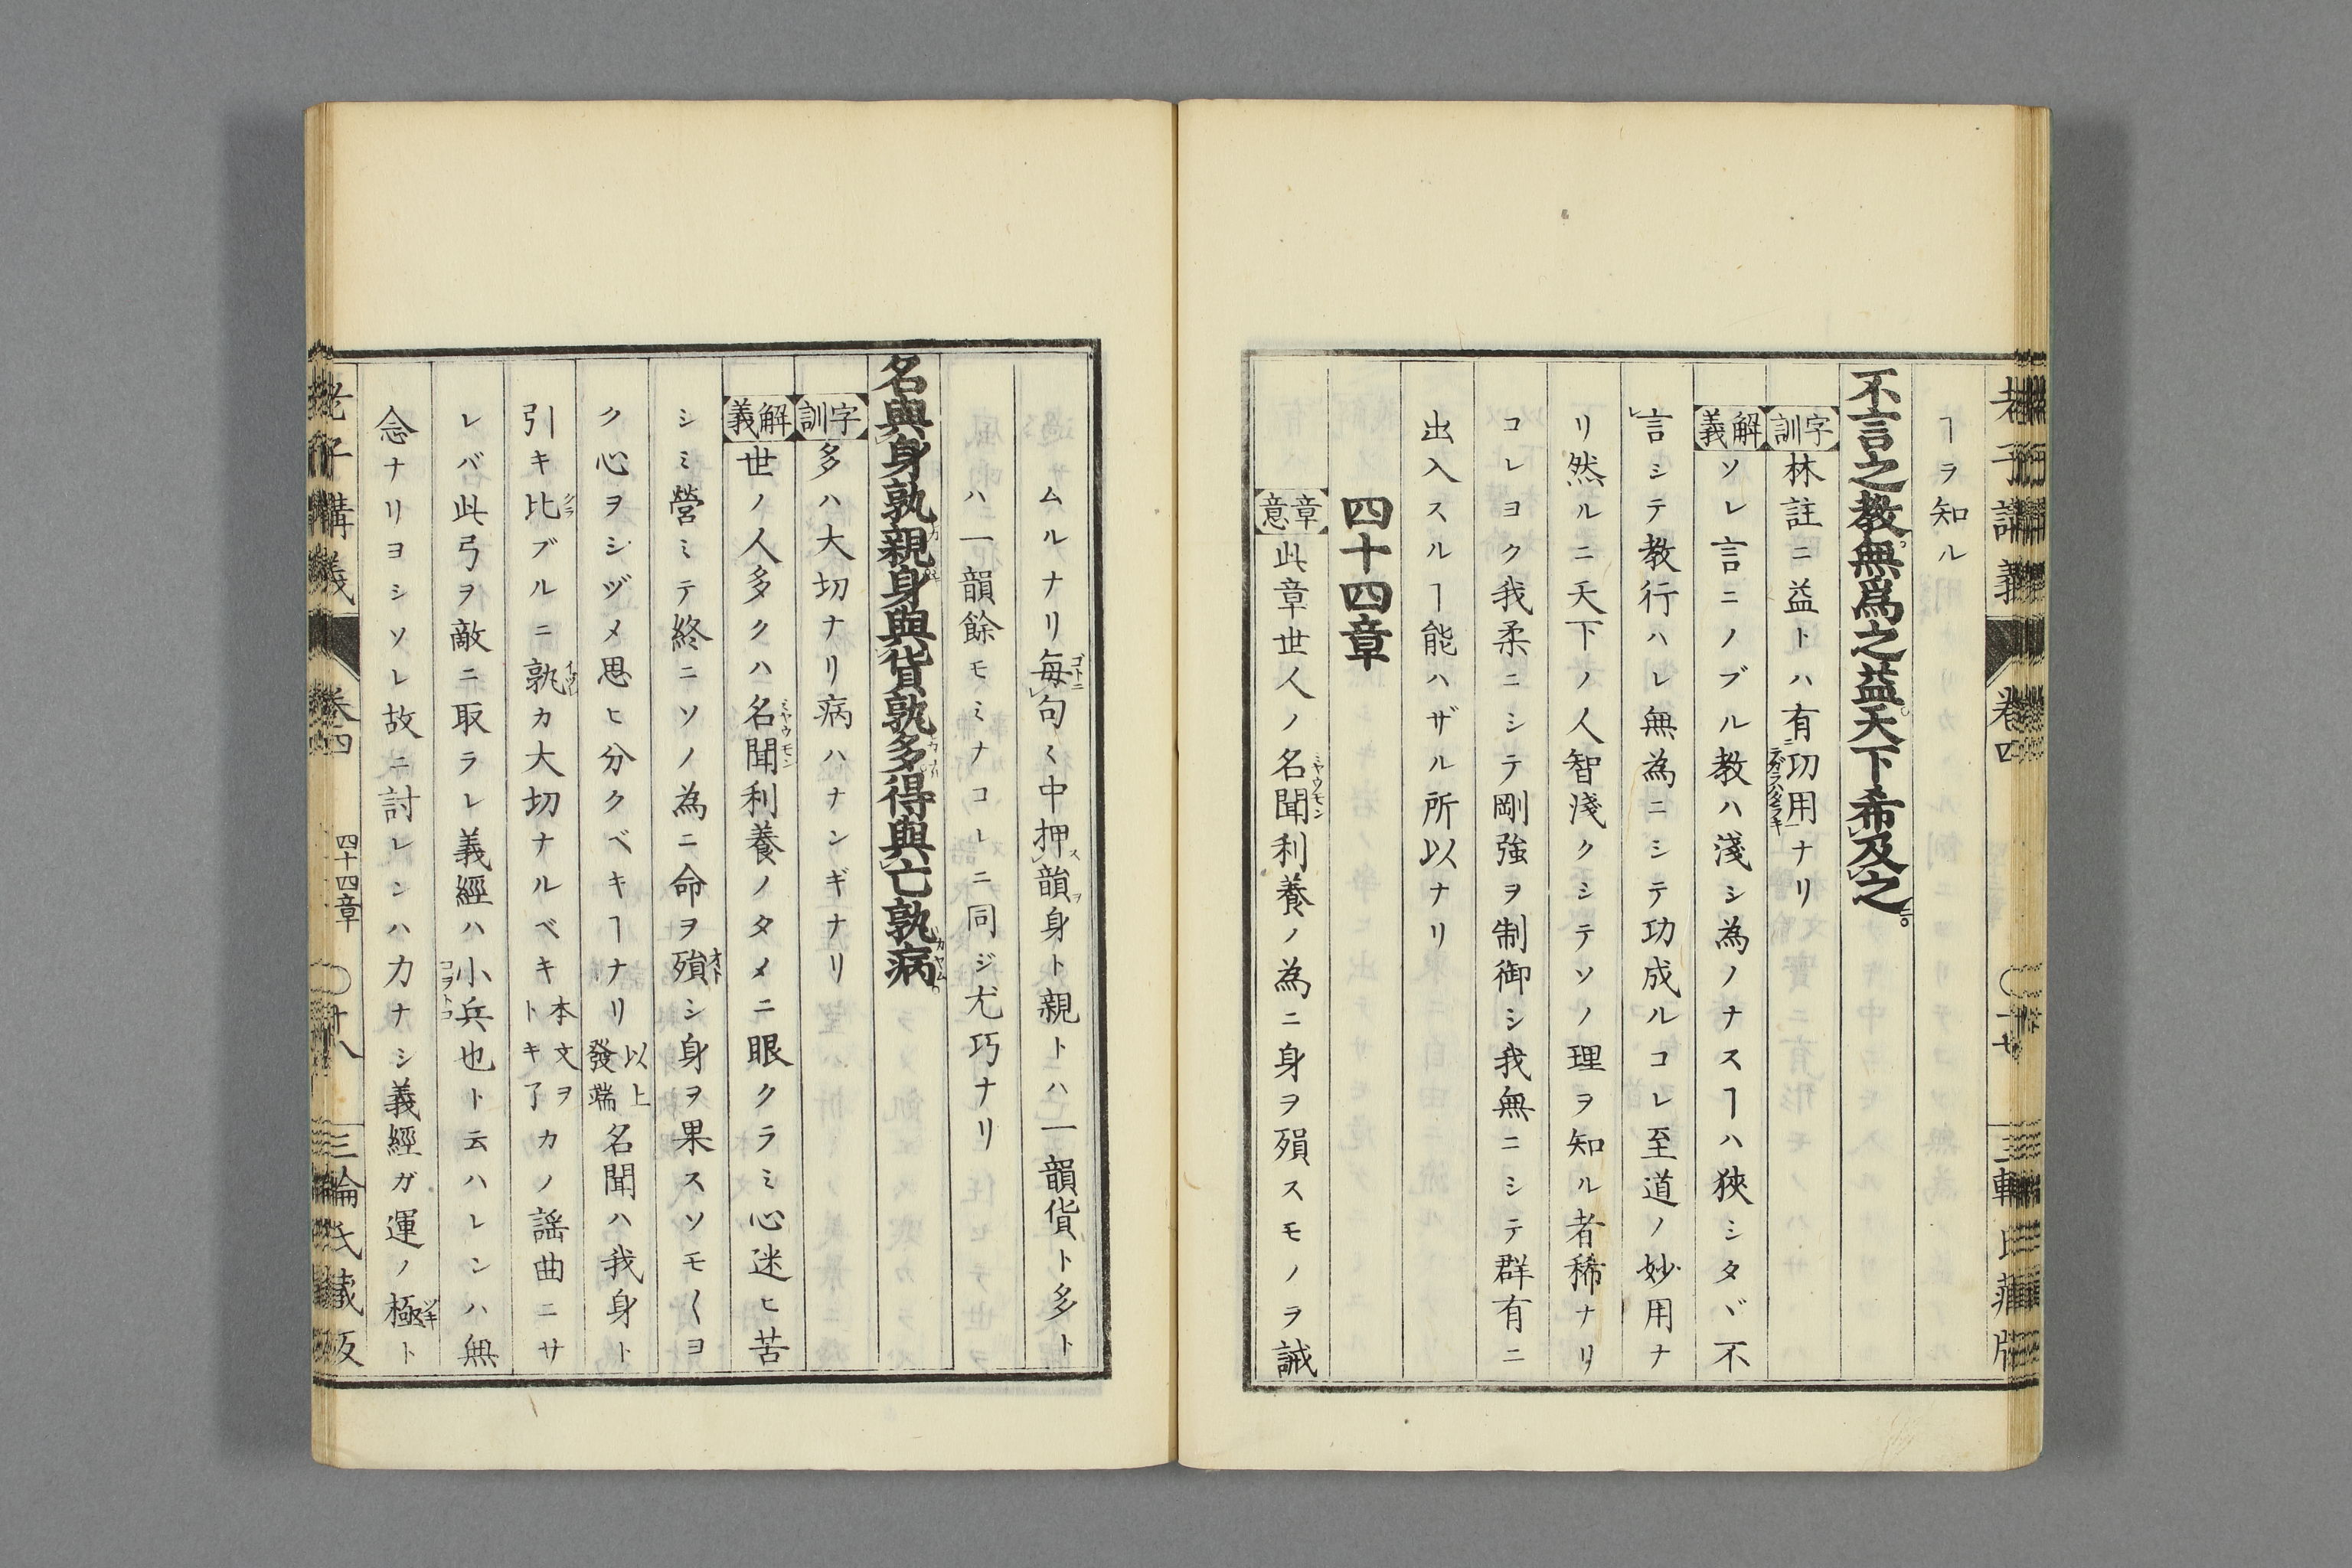 老子講義 卷四
ヿヲ知ル
不言之教無爲之益天下希及之。
字訓 林註ニ益トハ有功用ナリ
解義 ソレ言ニノブル教ハ淺シ為ノナスヿハ狹シタヾ不
言シテ教行ハレ無為ニシテ功成ルコレ至道ノ妙用ナ
リ然ルニ天下ノ人智淺クシテソノ理ヲ知ル者稀ナリ
コレヨク我柔ニシテ剛強ヲ制御シ我無ニシテ群有ニ
出入スルヿ能ハザル所以ナリ
四十四章
章意 此章世人ノ名聞利養ノ為ニ身ヲ殞スモノヲ誡
ムルナリ每句〻中押韻身ト親トハ一韻貨ト多ト
ハ一韻餘モミナコレニ同ジ尤巧ナリ
名與身孰親身與貨孰多得與亡孰病。
字訓 多ハ大切ナリ病ハナンギナリ
解義 世ノ人多クハ名聞利養ノタメニ眼クラミ心迷ヒ苦
シミ營ミテ終ニソノ為ニ命ヲ殞シ身ヲ果スソモ〱ヨ
ク心ヲシヅメ思ヒ分クベキヿナリ以上發端名聞ハ我身ト
引キ比ブルニ孰カ大切ナルベキ本文ヲトキ了カノ謡曲ニサ
レバ此弓ヲ敵ニ取ラレ義經ハ小兵也ト云ハレンハ無
念ナリヨシソレ故ニ討レンハ力ナシ義經ガ運ノ極ト
老子講義 卷四 四十四章 〇十八 三輪氏藏版